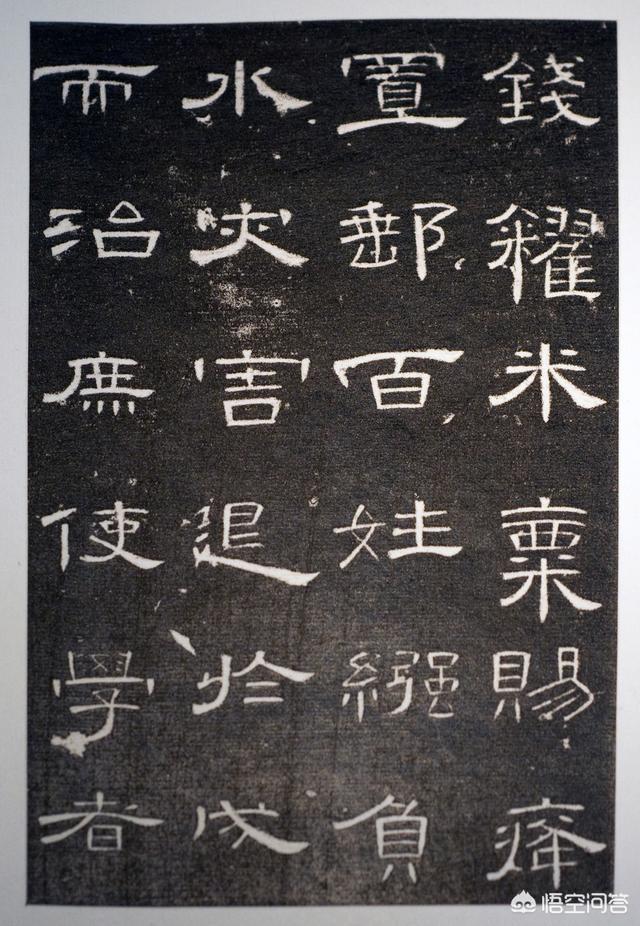 錢糴米粟賜癃
置郵百姓繈負
水灾害退於戌
而治庶使學者
悟空问答